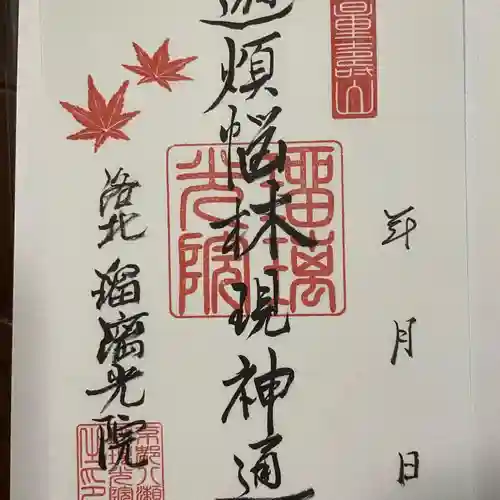 年 月 日
遊煩悩林現神通
洛北 瑠璃光院
瑠璃
光院